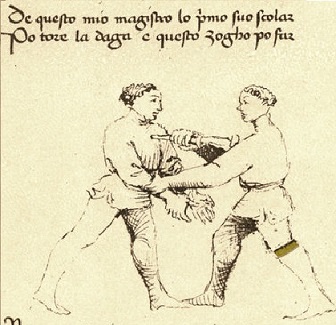 De questo mio magistro lo p̄mo suo scolar
Po tore la daga e questo zogho po far